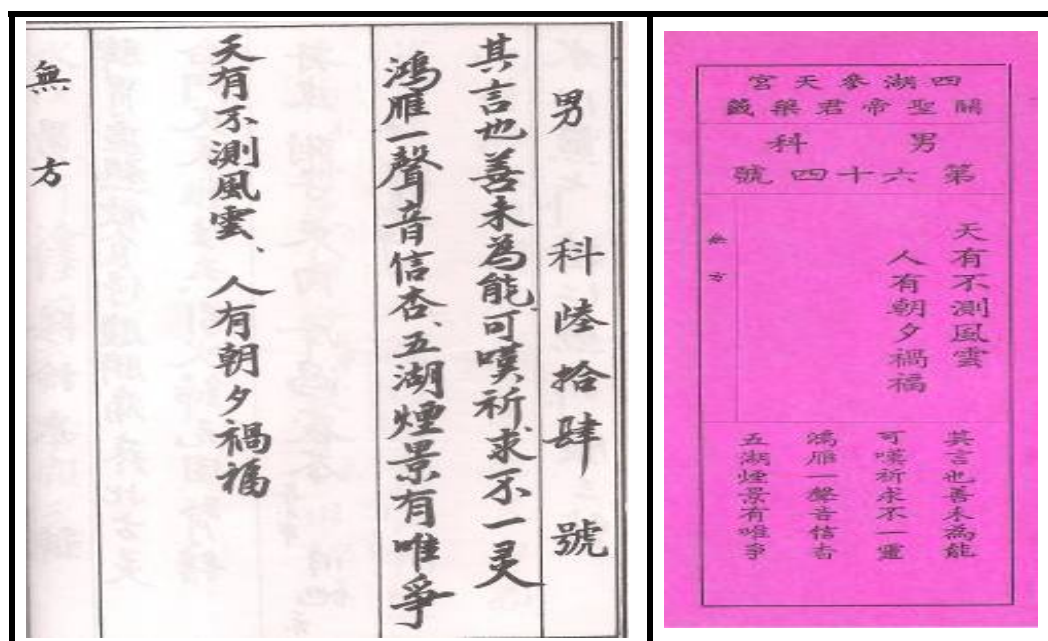 男科陸拾肆號
其言也善未為能、可嘆祈求不一灵
鴻雁一聲音信杳、五湖煙景有唯爭
天有不測風雲、人有朝夕禍福
無方
四湖參天宮
關聖帝君藥籤
男科
第六十四號
天有不測風雲
人有朝夕禍福
無方
其言也善未為能
可嘆祈求不一靈
鴻雁一聲音信杳
五湖煙景有唯爭